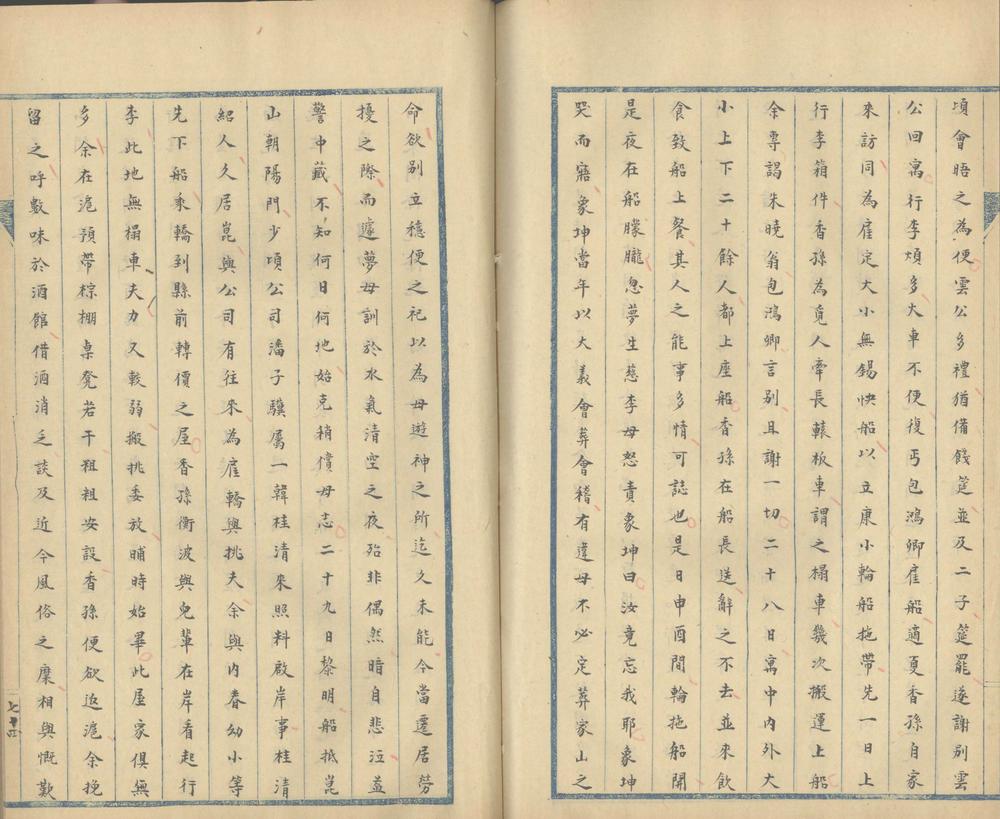 頃會晤之為便雲公多禮猶備餞筵並及二子筵罷遂謝別雲
公回寓行李煩多大車不便復丐包鴻卿雇船適夏香孫自家
來訪同為雇定大小無錫快船以立康小輪船拖帶先一日上
行李箱件香孫為覓人牽長轅板車謂之榻車幾次搬運上船
余專謁朱曉翁包鴻卿言別且謝一切二十八日寓中內外大
小上下二十餘人都上座船香孫在船長送辭之不去並來飲
食致船上餐其人之能事多情可誌也是日申酉間輪拖船開
是夜在船朦朧忽夢生慈李母怒責象坤曰汝竟忘我耶象坤
哭而寤象坤當年以大義會葬會稽有違母不必定葬家山之
命欲別立穩便之祀以為母遊神之所迄久未能今當遷居勞
擾之際而遽夢母訓於水氣清空之夜殆非偶然暗自悲泣益
警中藏不知何日何地始克稍償母志二十九日黎明船抵崑
山朝陽門少頃公司潘子驥屬一韓桂清來照料啟岸事桂清
紹人久居崑與公司有往來為雇轎與挑夫余與內眷幼小等
先下船乘轎到縣前轉價之屋香孫衡波與兒輩在岸看起行
李此地無榻車夫力又較弱搬挑委放晡時始畢此屋家俱無
多余在滬預帶棕棚桌凳若干粗粗安設香孫便欲返滬余挽
留之呼數味於酒館借酒消乏談及近今風俗之縻相與慨歎